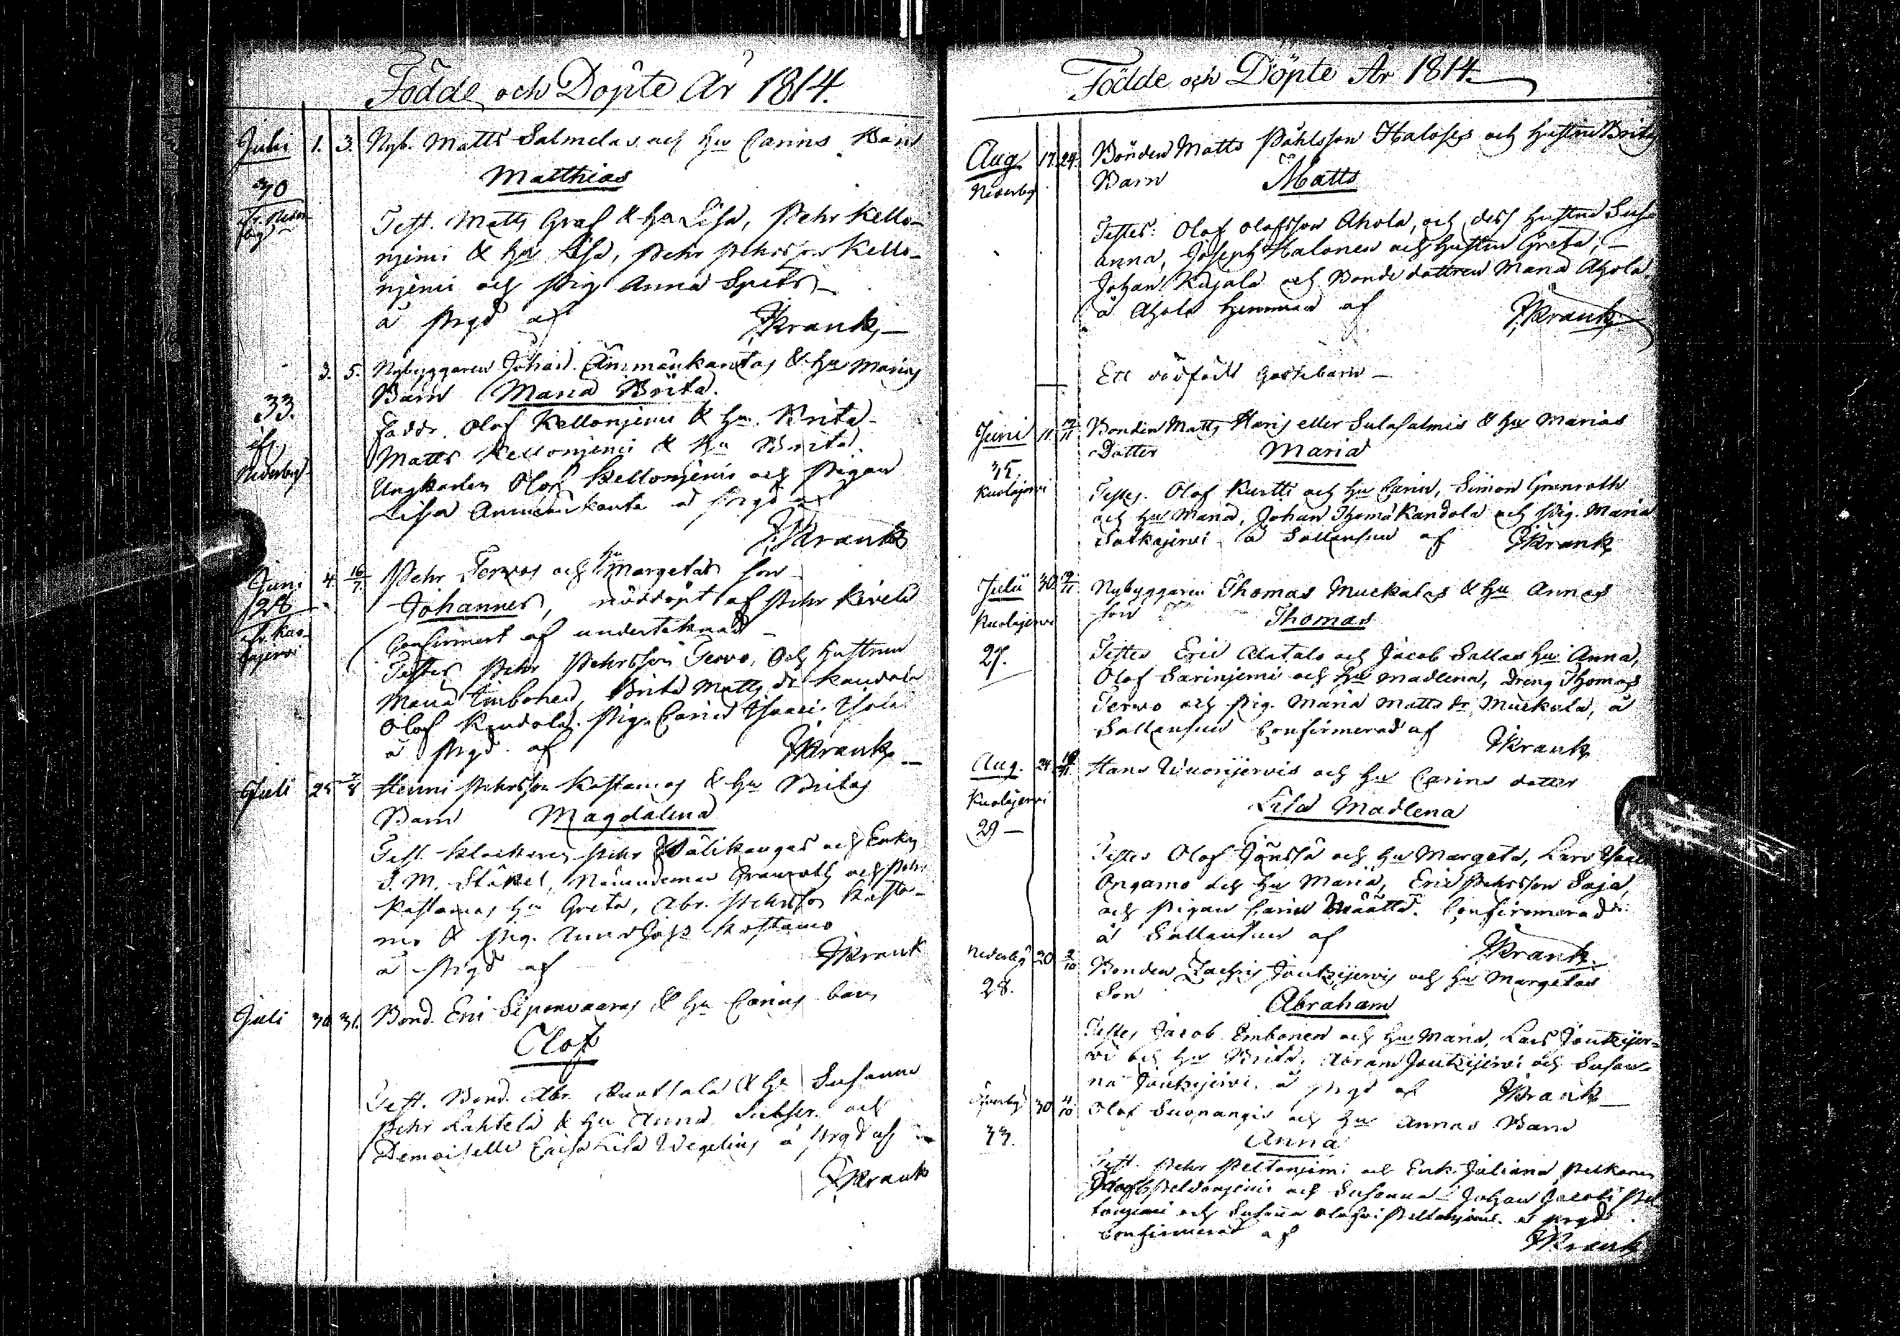 Födde och Döpte År 1814.
Juli 1. 3. Nyb. Matts Salmelas och Hu Carins Barn
30 Matthias
Test. Matts Graf & Hu Lisa, Pehr Kello-
njemi & Hu Lisa, Pehr Pehrsson Kello-
njemi och Pig. Anna
å Prgd af JKrank
3. 5. Nybyggaren Johan Ämmänkantas & Hu Marias
Barn Maria Brita.
33. Faddr. Olof Kellonjemi & Hu Brita
Matts Kellonjemi & Hu Brita.
Nederby Ungkarlen Olof Kellonjemi och Pigan
Lisa Ämmänkanta å Prgd af
JKrank
Juni 4. 16/7 Pehr Tervos och Hu Margetas son
28 Johannes, nöddöpt af Pehr Kivelä
Confirmert af underteknad
Testes Pehr Pehrsson Tervo, och Hustrun
Maria Imbonen, Brita Matts dr Kandola
Olof Kandola. Pig. Carin
å Prgd. af JKrank
Juli 25 7/8 Henric Pehrsson Kostamos & Hu Britas
Barn Magdalena
Test. Klockaren Pehr Wälikangas och Enkan
S. M. Ståhel, Nämndeman Granroth och Pehr
Kostamos Hu Greta, Abr. Pehrsson Kosta-
mo & Pig. Anna Kostamo
å Prgd af JKrank
Juli 30 31. Bond. Eric Siponvaaras & Hu Carins barn
Olof
Test. Bond. Abr. & Hu Susanna
Pehr Lahtela & Hu Anna och
Demoiselle Caisa Lisa Wegelius å Prgd af
JKrank
Födde och Döpte År 1814.
Aug. 17. 24. Bonden Matts Påhlsson Halosses och Hustru Britas
Nederby Barn Matts
Testes: Olof Olofsson Ahola, och dess Hustru Susa
anna, Joseph Halonen och Hustru Greta,
Johan Kujala och Bonde dottren Maria Ahola
å Ahola Hemman af JKrank
Ett dödfödt Gossebarn
Juni 11. 12/11 Bonden Matts Haris eller Sulasalmis & Hu Marias
Dotter Maria
35.
Kuolajervi Testes. Olof Kurtti och Hu Carin, Simon Granroth
och Hu Maria, Johan Thoma Kandola och Pig. Maria
Salkajervi å Sallansuu af JKrank
Julii 30 12/11 Nybyggaren Thomas Muckalas & Hu Annas
Kuolajervi son Thomas
27. Testes Eric Alatalo och Jacob Sallas Hu Anna,
Olof Sarinjemi och Hu Madlena, dreng Thomas
Tervo och Pig. Maria Matts dr Muckala, å
Sallansuu Confirmerad af JKrank
Aug. 24. Hans Wuorijervis och Hu Carins dotter
Kuolajervi Lisa Madlena
29
Testes Olof Jänssä och Hu Margeta, Lars
Ongamo och Hu Maria, Eric Pehrsson Saja,
och Pigan Carin Määttä. Confirmerad
å Sallansuu af JKrank
Nederby 20 2/10 Bonden Zachris Joutzijervis och Hu Margetas
28. Son Abraham
Testes Jacob Imbonen och Hu Maria, Lars Joutzijer-
vi och Hu Brita, Abram Joutzijervi och Susan-
na Joutzijervi. å Prgd af JKrank
30 4/10 Olof Suopangis och Hu Annas Barn
33. Anna
Test. Pehr Peltonjemi och Enk. Juliana Pelkonen
Peldonjemi och Susanna, Johan Jacobi Pel
tonjemi och Susanna Olofsr Peltonjemi. å Prgd
Confirmerad af JKrank